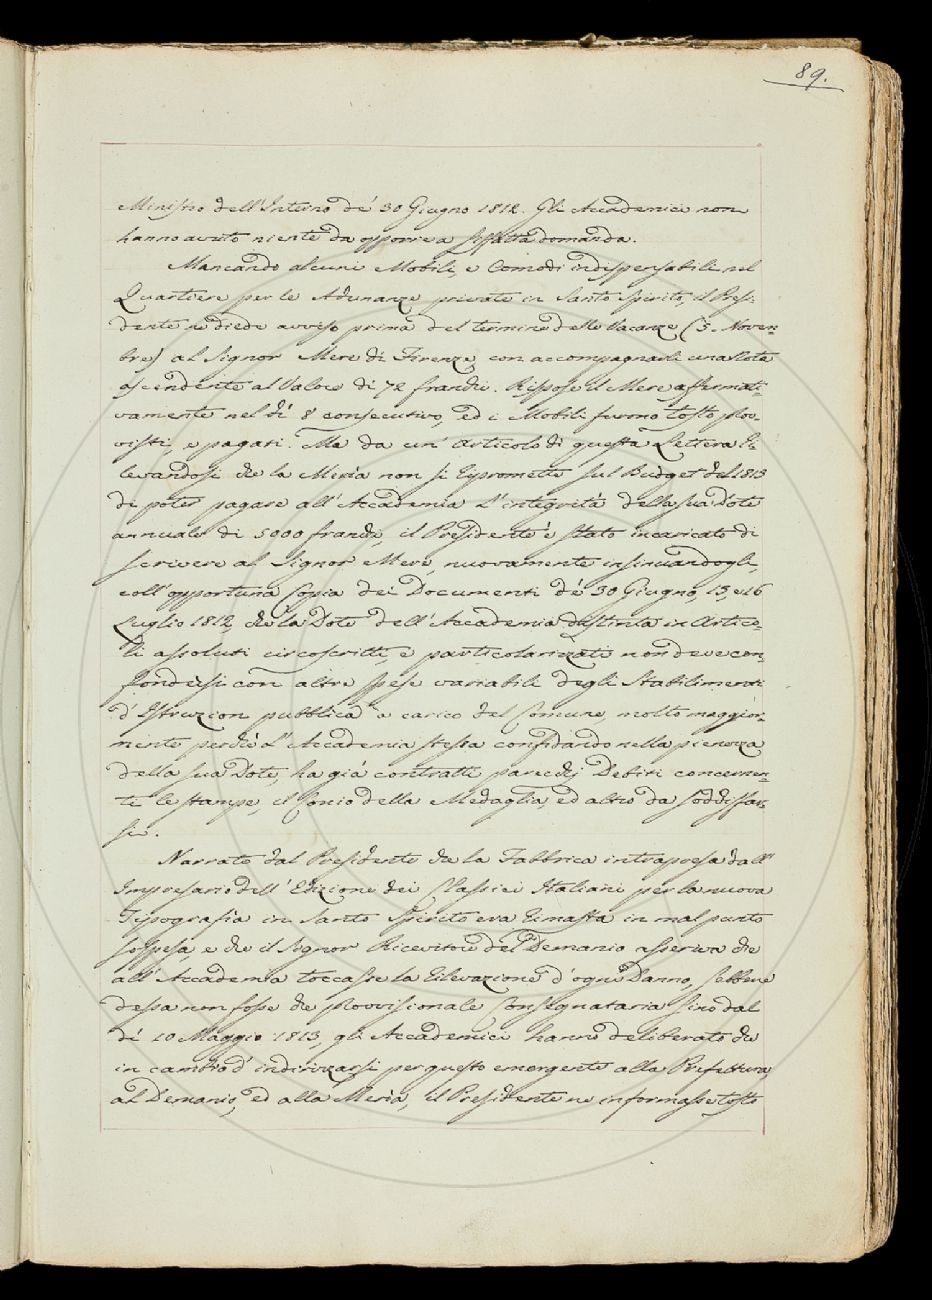 89.
Ministro dell'Interno de' 30 Giugno 1812. Gli Accademici non
hanno avuto niente da opporre a siffatta domanda.
Mancando alcuni Mobili, e Comodi indispensabili nel
Quartiere per le Adunanze private in Santo Spirito, il Presi-
dente ne diede avviso prima del termine delle Vacanze (5. Novem-
bre) al Signor Mere di Firenze con accompagnarli una Nota
ascendente al Valore di 72 franchi. Rispose il Mere affirmati-
vamente nel dì 8 consecutivo, ed i Mobili furono tosto prov-
visti, e pagati. Ma da un' Articolo di questa Lettera Ri-
levandosi che la Merìa non si Ripromette sul Budget del 1813
di poter pagare all'Accademia l'integrità della sua Dote
annuale di 5000 franchi, il Presidente è stato incaricato di
scrivere al Signor Mere, nuovamente insinuandogli,
coll'opportuna Copia dei Documenti de' 30 Giugno, 13, e 16
Luglio 1812, che la Dote dell'Accademia distinta in Artico-
li assoluti circoscritti, e particolarizzati non deve con-
fondersi con altre spese variabili degli Stabilimenti
d'Istruzion pubblica a carico del Comune, molto maggior-
mente perchè l'Accademia stessa confidando nella pienezza
della sua Dote, ha già contratti parecchj Debiti concernen-
ti le stampe, il Conio della Medaglia, ed altro da soddisfar-
si.
Narrato dal Presidente che la Fabbrica intrapresa dall'
Impresario dell'Edizione dei Classici Italiani per la nuova
Tipografia in Santo Spirito era Rimasta in mal punto
sospesa, e che il Signor Ricevitore del Demanio asseriva che
all'Accademia toccasse la Rilevazione d'ogni Danno, sebbene
dessa non fosse che provvisionale Consegnataria sino dal
dì 10 Maggio 1813, gli Accademici hanno deliberato che
in cambio d'indirizzarsi per questo emergente alla Prefettura,
al Demanio, ed alla Merìa, il Presidente ne informasse tosto